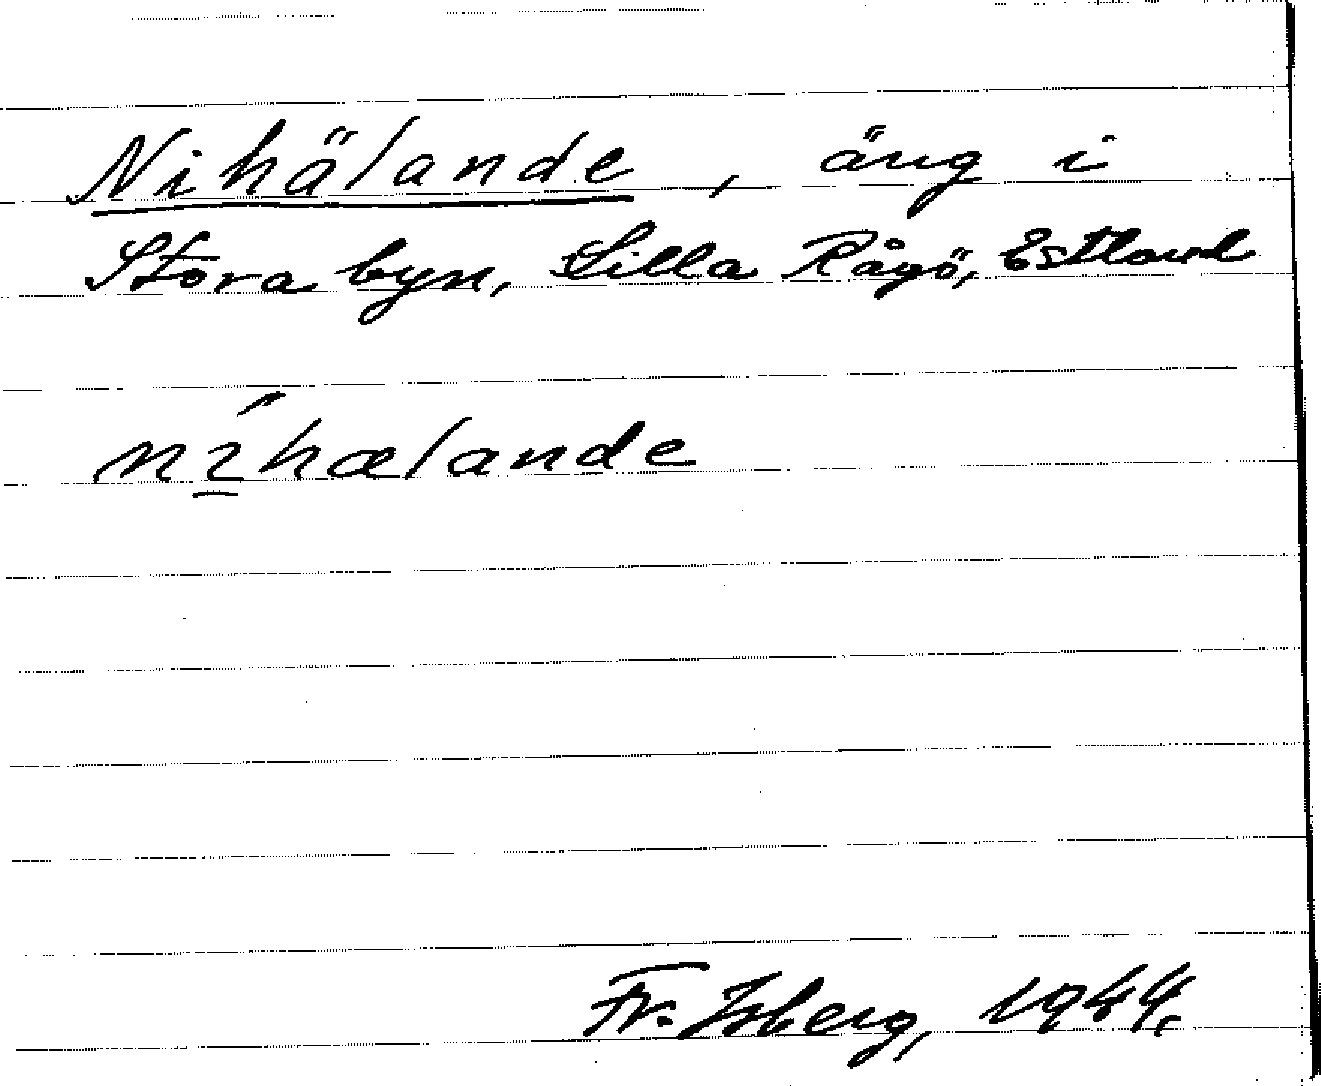 Nihälande, äng i
Stora byn, Lilla Rågö, Estland
níhælande
Fr. Isberg, 1944.